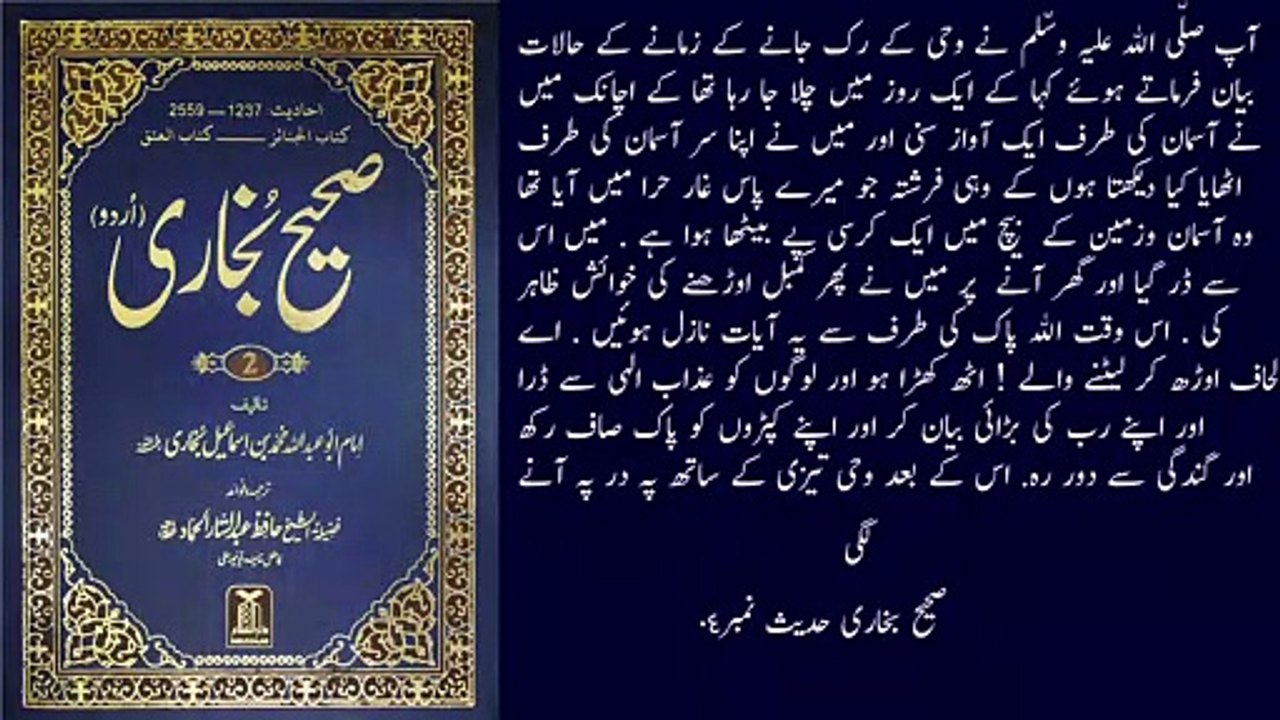 احادیث: 1237 — 2559
کتاب الجنائز — کتاب العتق
صحیح بخاری (اُردو)
2
تالیف
امام ابوعبداللہ محمد بن اسماعیل بخاری
حافظ عبدالستار الحماد
آپ صلّی اللہ علیہ وسلّم نے وحی کے رک جانے کے زمانے کے حالات
بیان فرماتے ہوئے کہا کے ایک روز میں چلا جا رہا تھا کے اچانک میں
نے آسمان کی طرف ایک آواز سنی اور میں نے اپنا سر آسمان کی طرف
اٹھایا کیا دیکھتا ہوں کے وہی فرشتہ جو میرے پاس غار حرا میں آیا تھا
وہ آسمان وزمین کے بیچ میں ایک کرسی پے بیٹھا ہوا ہے . میں اس
سے ڈر گیا اور گھر آنے پر میں نے پھر کمبل اوڑھنے کی خوائش ظاہر
کی . اس وقت اللہ پاک کی طرف سے یہ آیات نازل ہوئیں . اے
لحاف اوڑھ کر لیٹنے والے ! اٹھ کھڑا ہو اور لوگوں کو عذاب الہی سے ڈرا
اور اپنے رب کی بڑائی بیان کر اور اپنے کپڑوں کو پاک صاف رکھ
اور گندگی سے دور رہ. اس کے بعد وحی تیزی کے ساتھ پہ در پہ آنے
لگی
صحیح بخاری حدیث نمبر ٤.